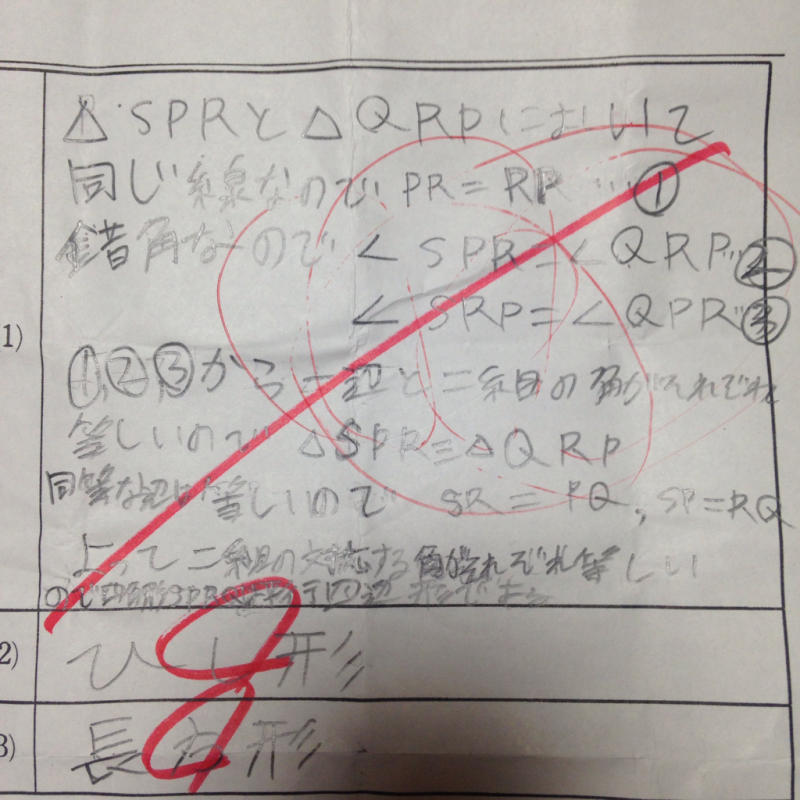 △SPRと△QRPにおいて
同じ線なので PR=RP …①
1) 錯角なので ∠SPR=∠QRP…②
∠SRP=∠QPR…③
①,②,③から一辺と二組の角がそれぞれ
等しいので △SPR≡△QRP
同等な辺は等しいので SR=PQ, SP=RQ
よって二組の対応する角がそれぞれ等しい
ので四角形SPRQは平行四辺形である
2) ひし形
3) 長方形